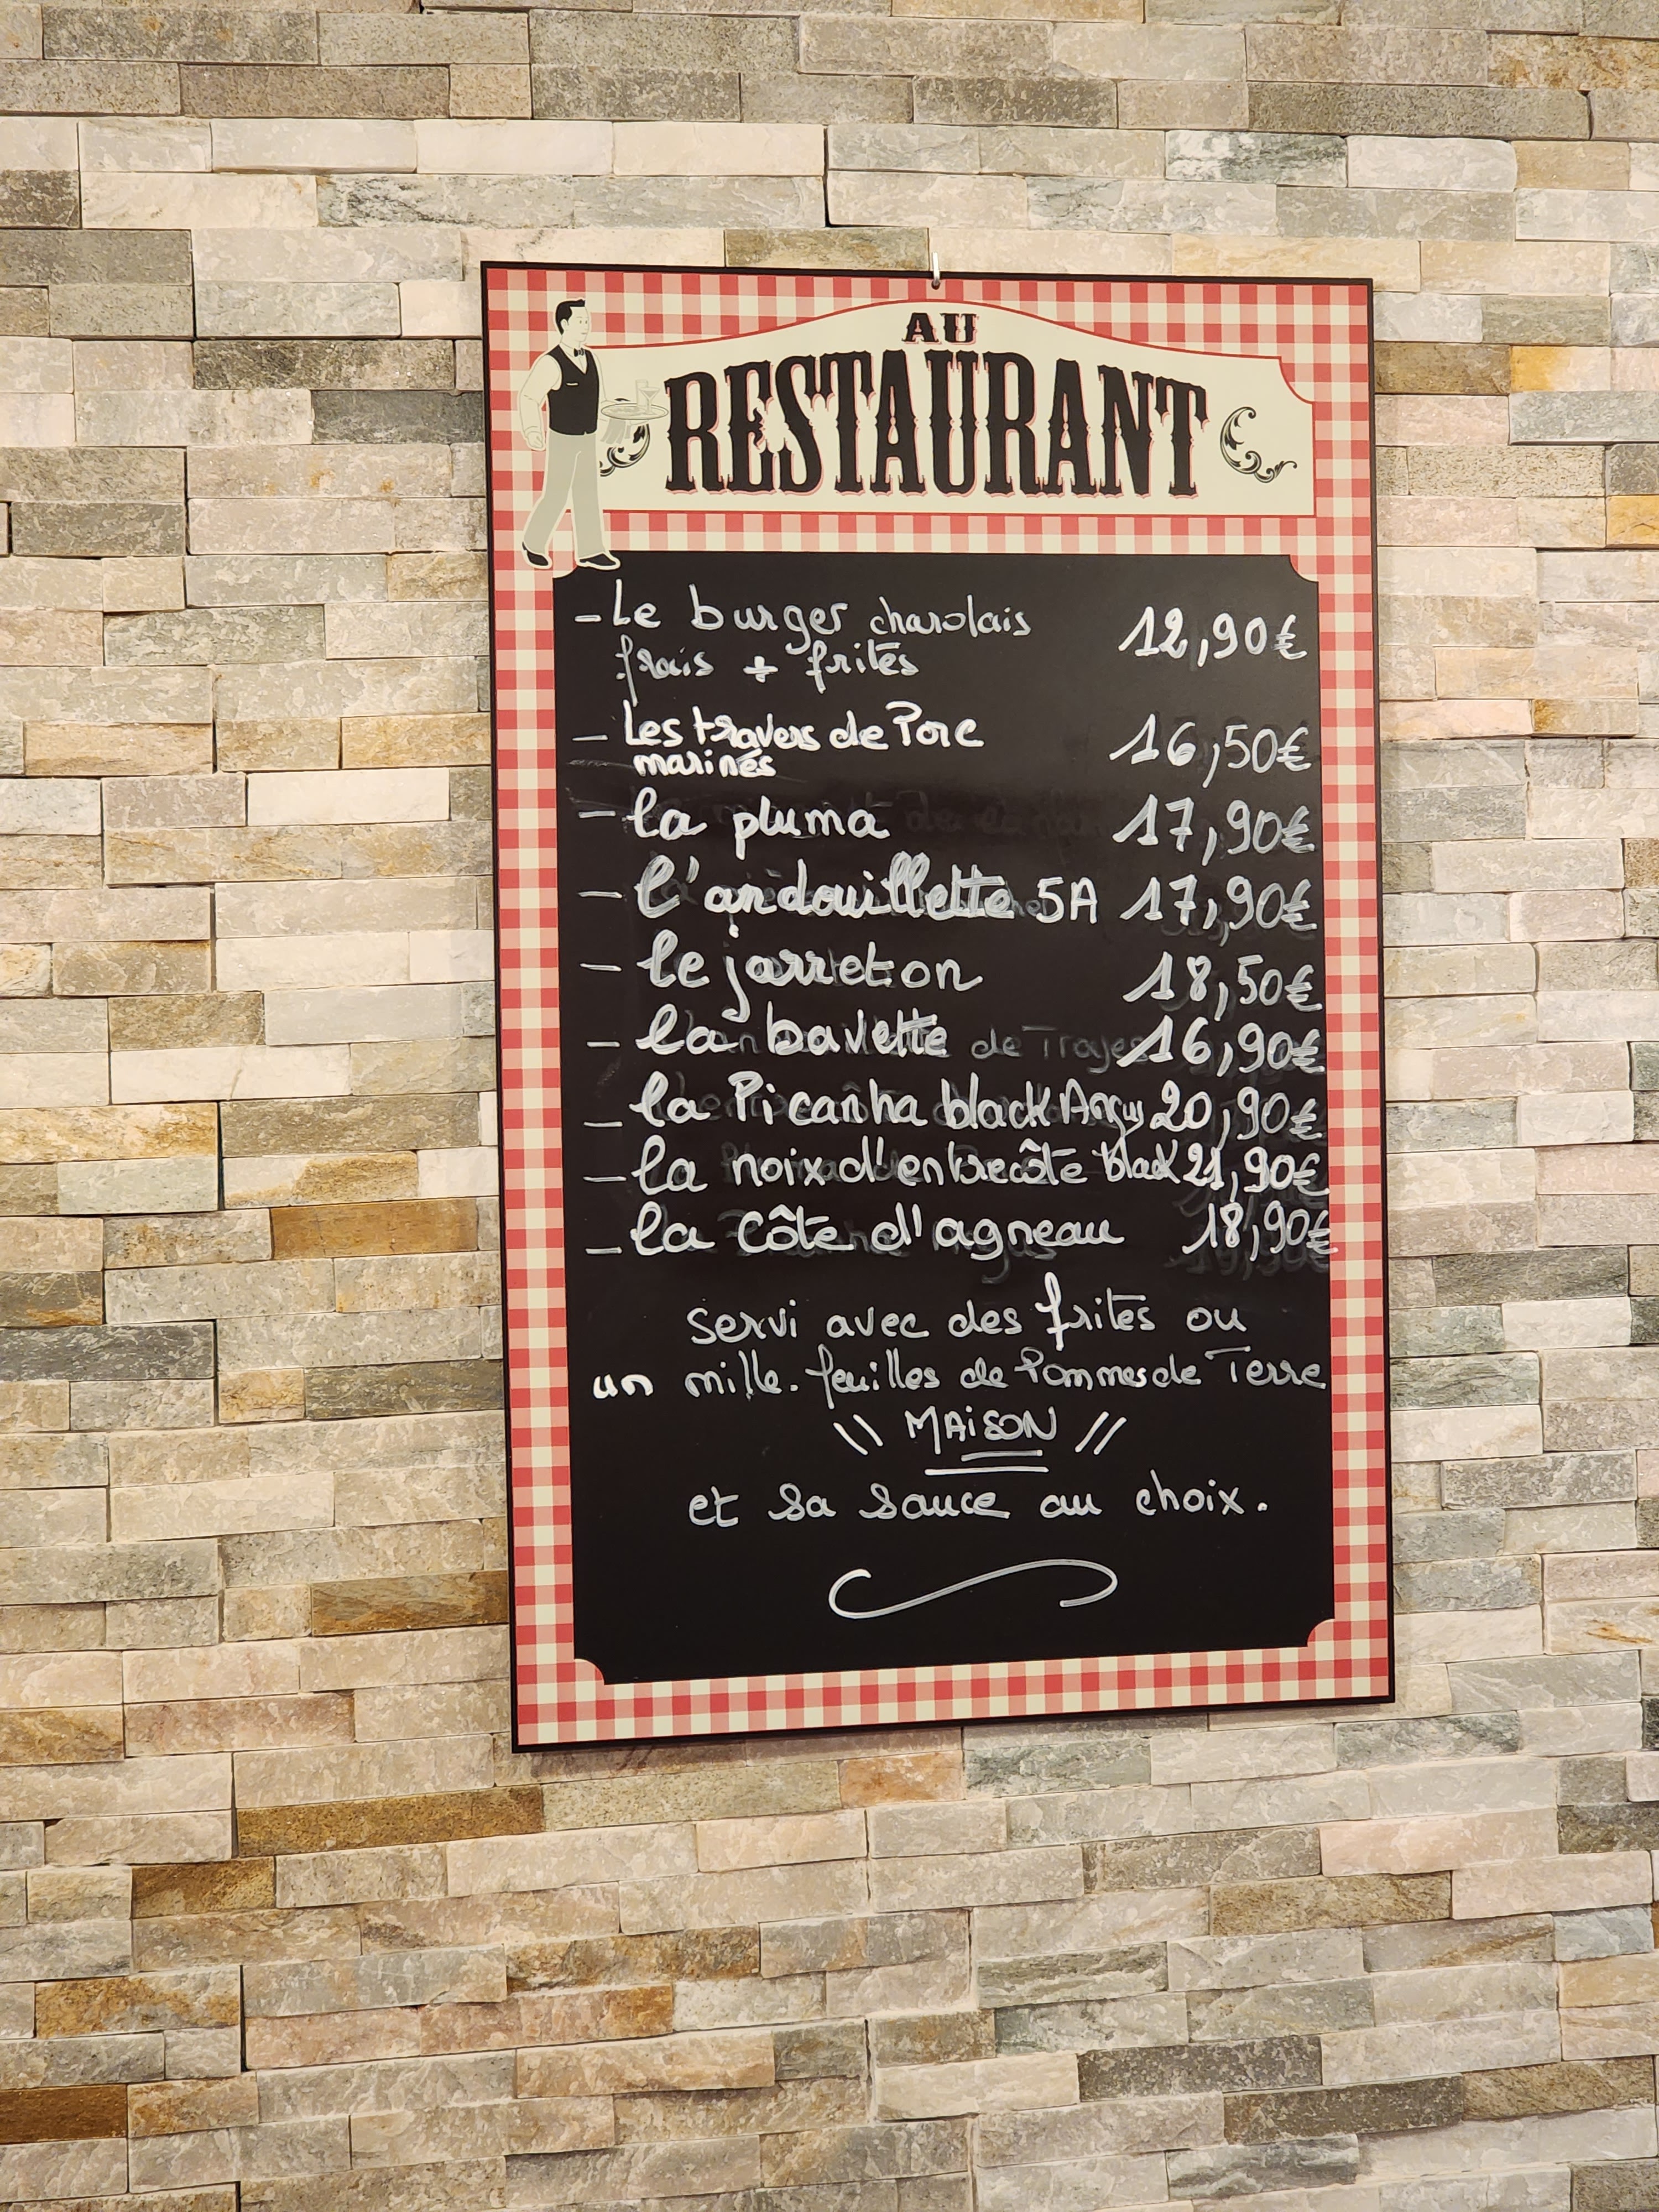 AU
RESTAURANT
- Le burger charolais 12,90€
frais + frites
- Les travers de Porc 16,50€
marinés
- la pluma 17,90€
- l'andouillette 5A 17,90€
- le jarreton 18,50€
- la bavette 16,90€
- la Picanha black Angus 20,90€
- la noix d'entrecôte black 21,90€
- la côte d'agneau 18,90€
servi avec des frites ou
un mille.feuilles de Pommes de Terre
\\ MAiSON //
et sa sauce au choix.